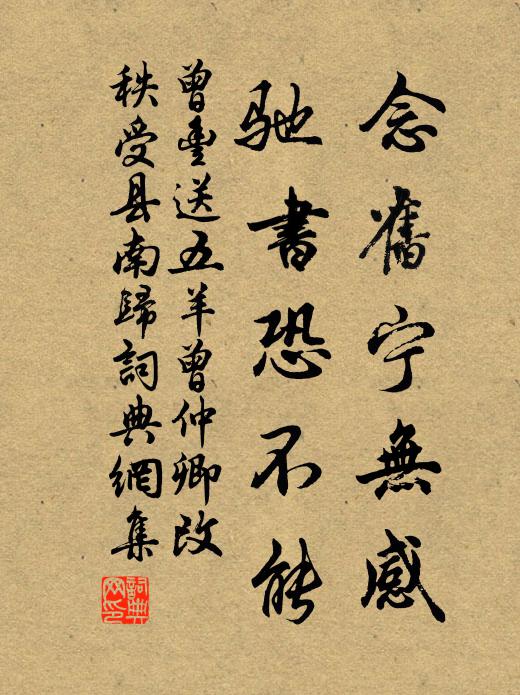 念舊宁無感
馳書恐不能
曾豊送五羊曾仲卿改
秩受县南歸詞典網集
詞典网印